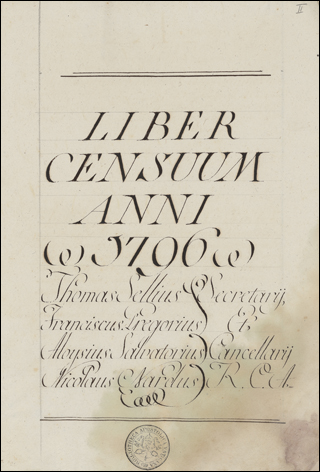 II
LIBER
CENSUUM
ANNI
1796
Thomas Lellius Secretarij,
Franciscus Gregorius Et
Aloysius Salvatorius Cancellarij
Nicolaus Nardus R. C. A.